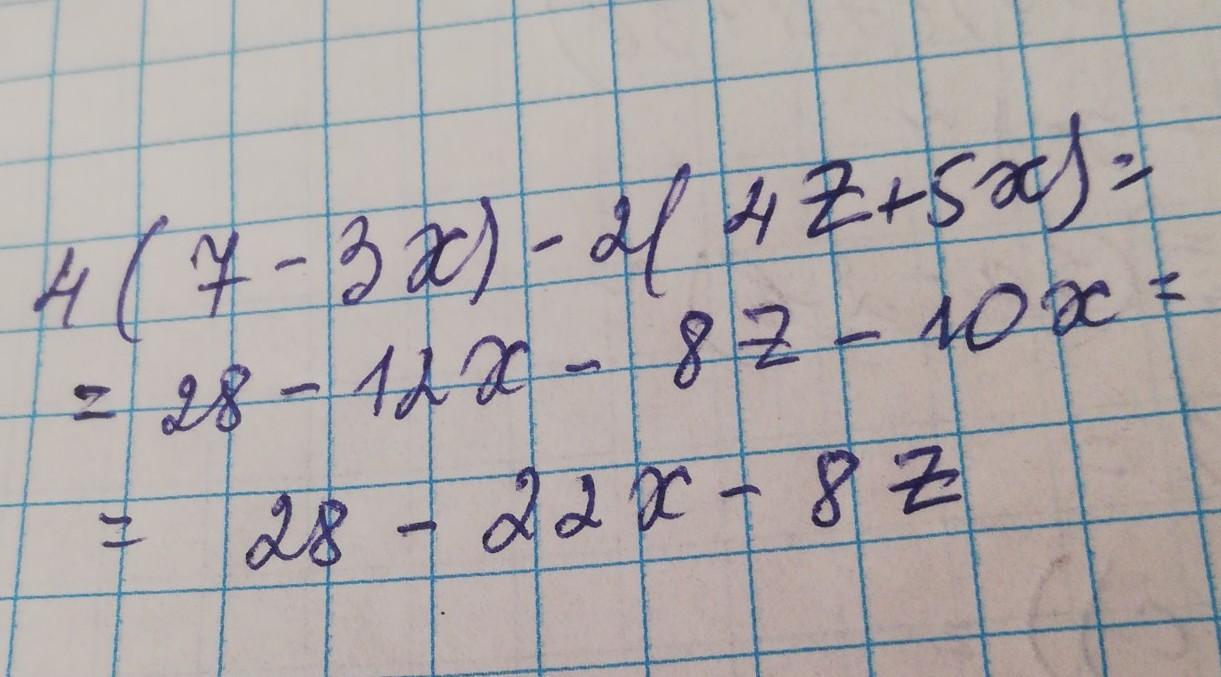 4(7-3x)-2(4z+5x)=
=28-12x-8z-10x=
=28-22x-8z